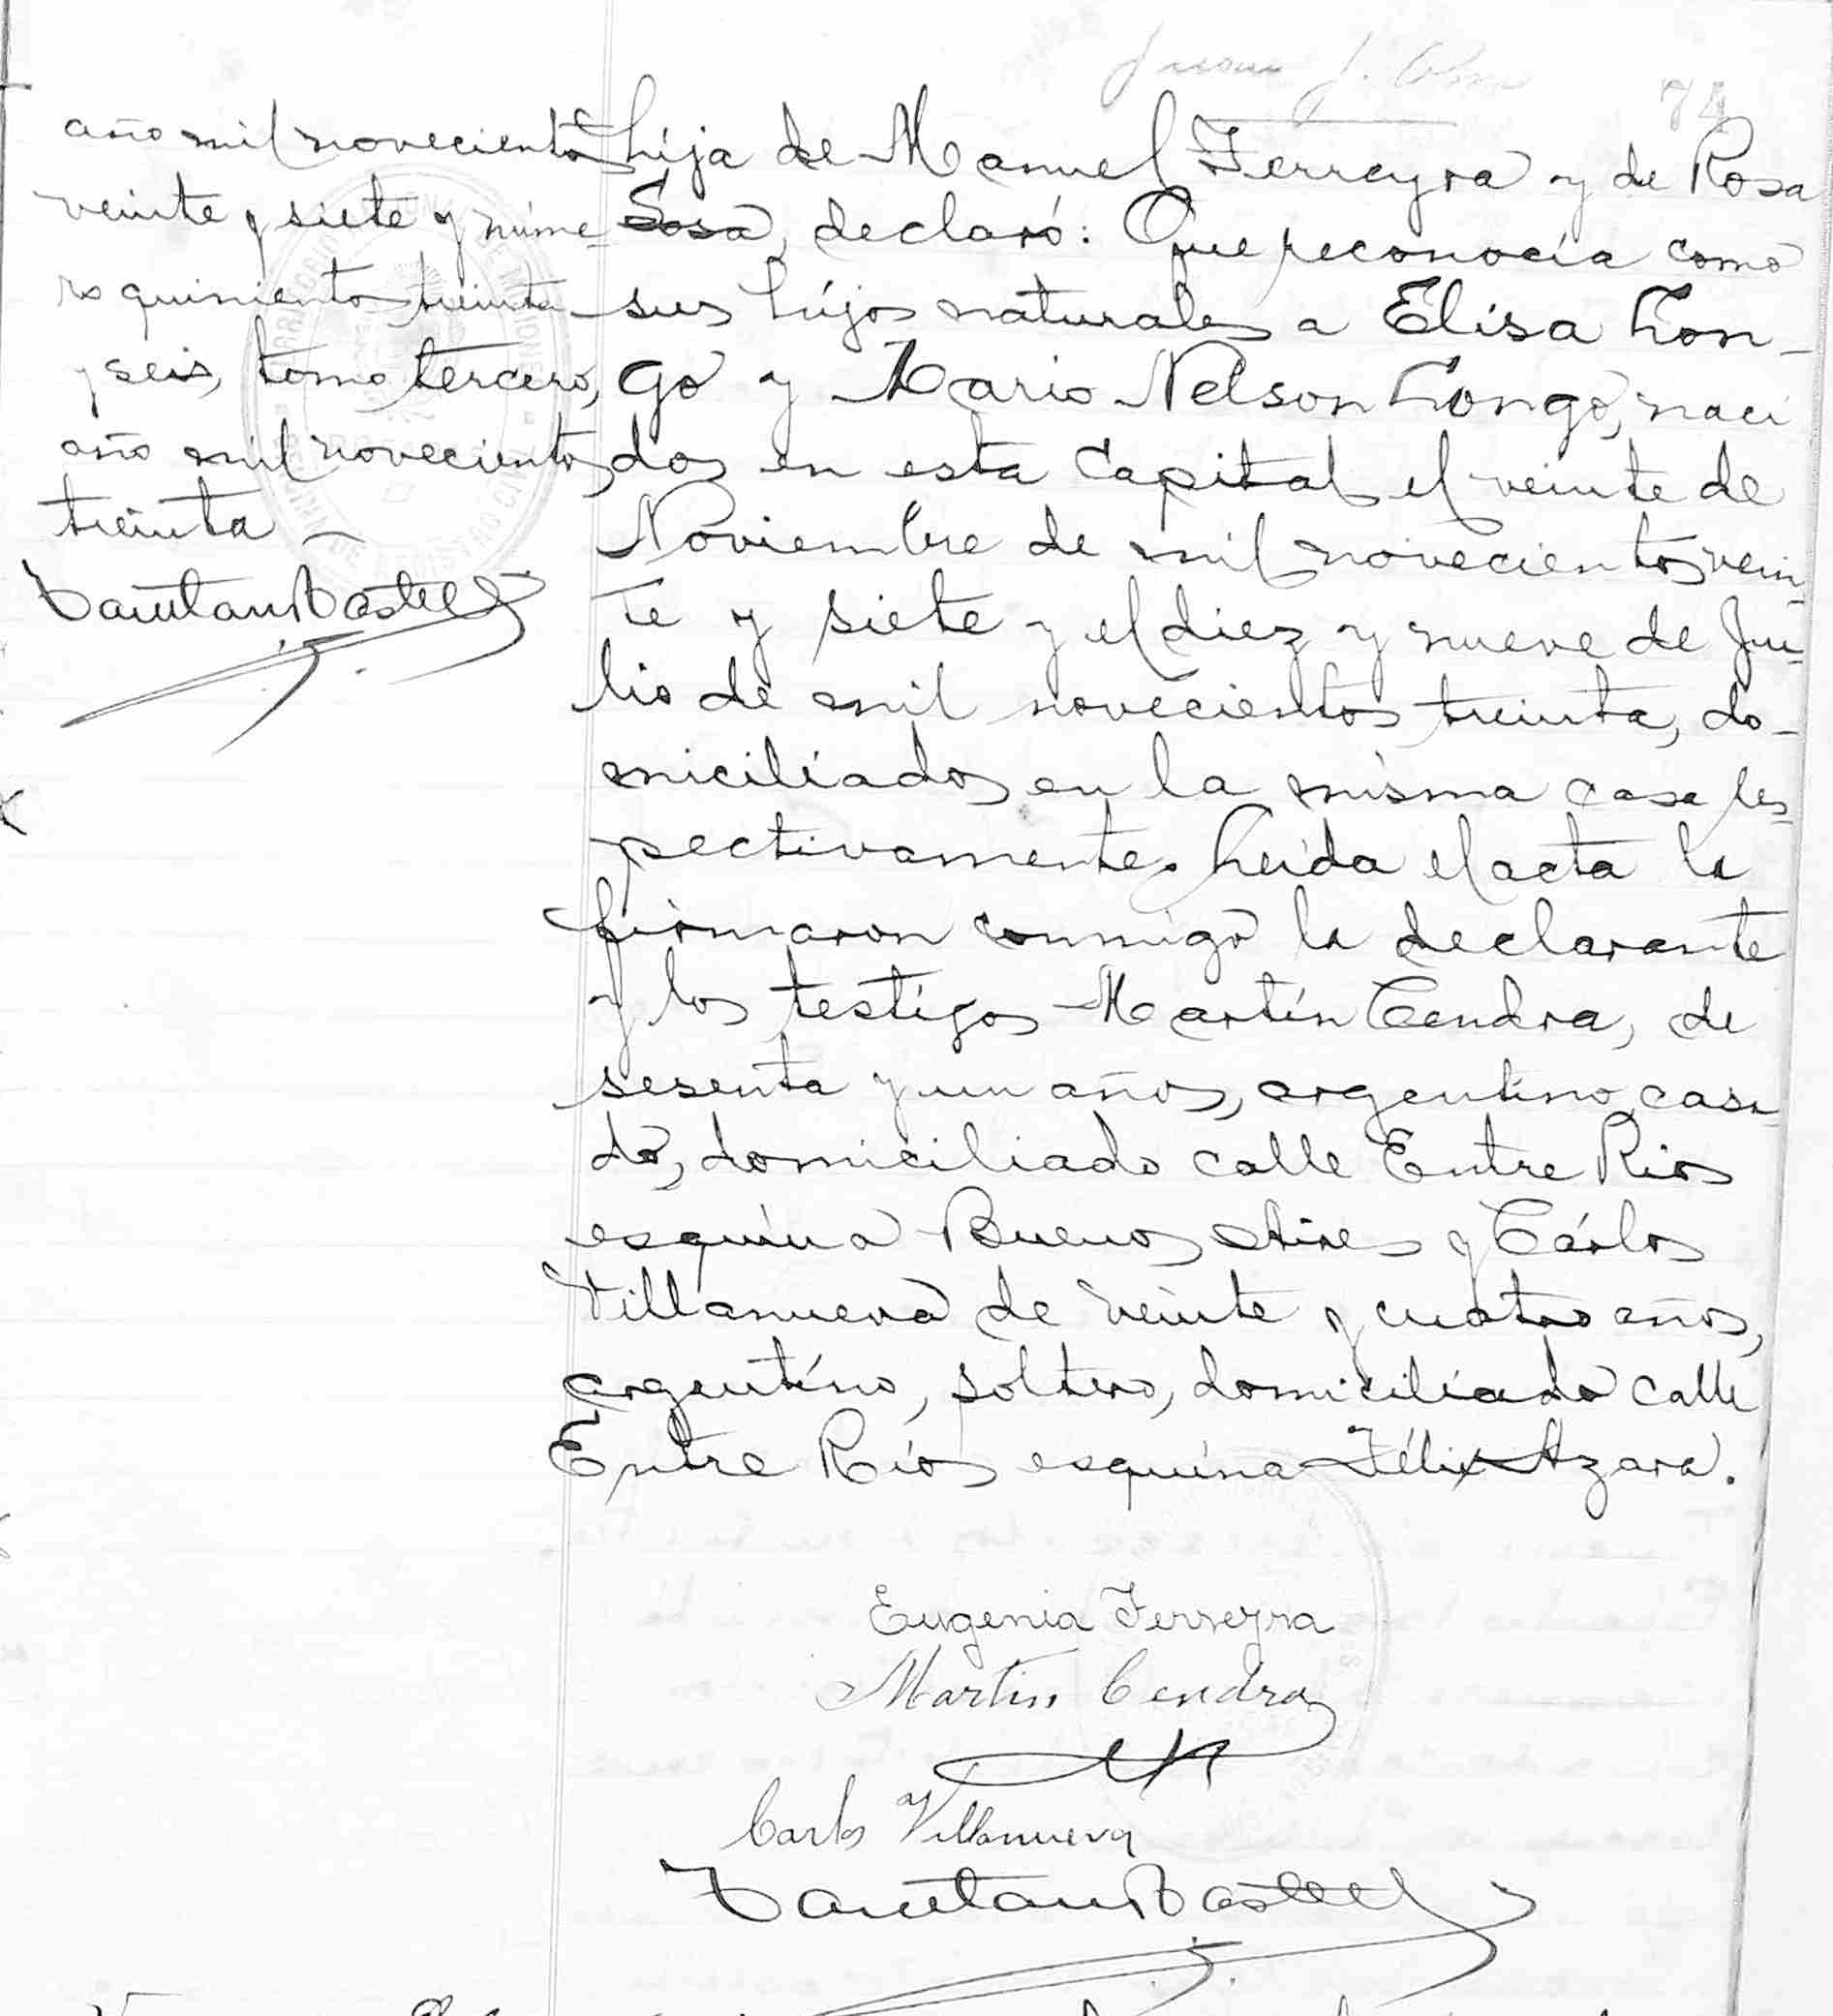 74
año mil novecientos
veinte y siete y núme-
ro quinientos treinta
y seis, tomo tercero,
año mil novecientos
treinta
hija de Manuel Ferreyra y de Rosa
Sosa, declaró: Que reconocía como
sus hijos naturales a Elisa Lon-
go y Mario Nelson Longo, naci
dos en esta Capital el veinte de
Noviembre de mil novecientos vein
te y siete y el diez y nueve de Ju-
lio de mil novecientos treinta, do-
miciliados en la misma casa res-
pectivamente. Leída el acta la
firmaron conmigo la declarante
y los testigos Martín Cendra, de
sesenta y un años, argentino, casa
do, domiciliado calle Entre Rios
esquina Buenos Aires y Cárlos
Villanueva de veinte y cuatro años,
argentino, soltero, domiciliado calle
Entre Ríos esquina Félix Azara.
Eugenia Ferreyra
Martin Cendra
Carlos Villanueva